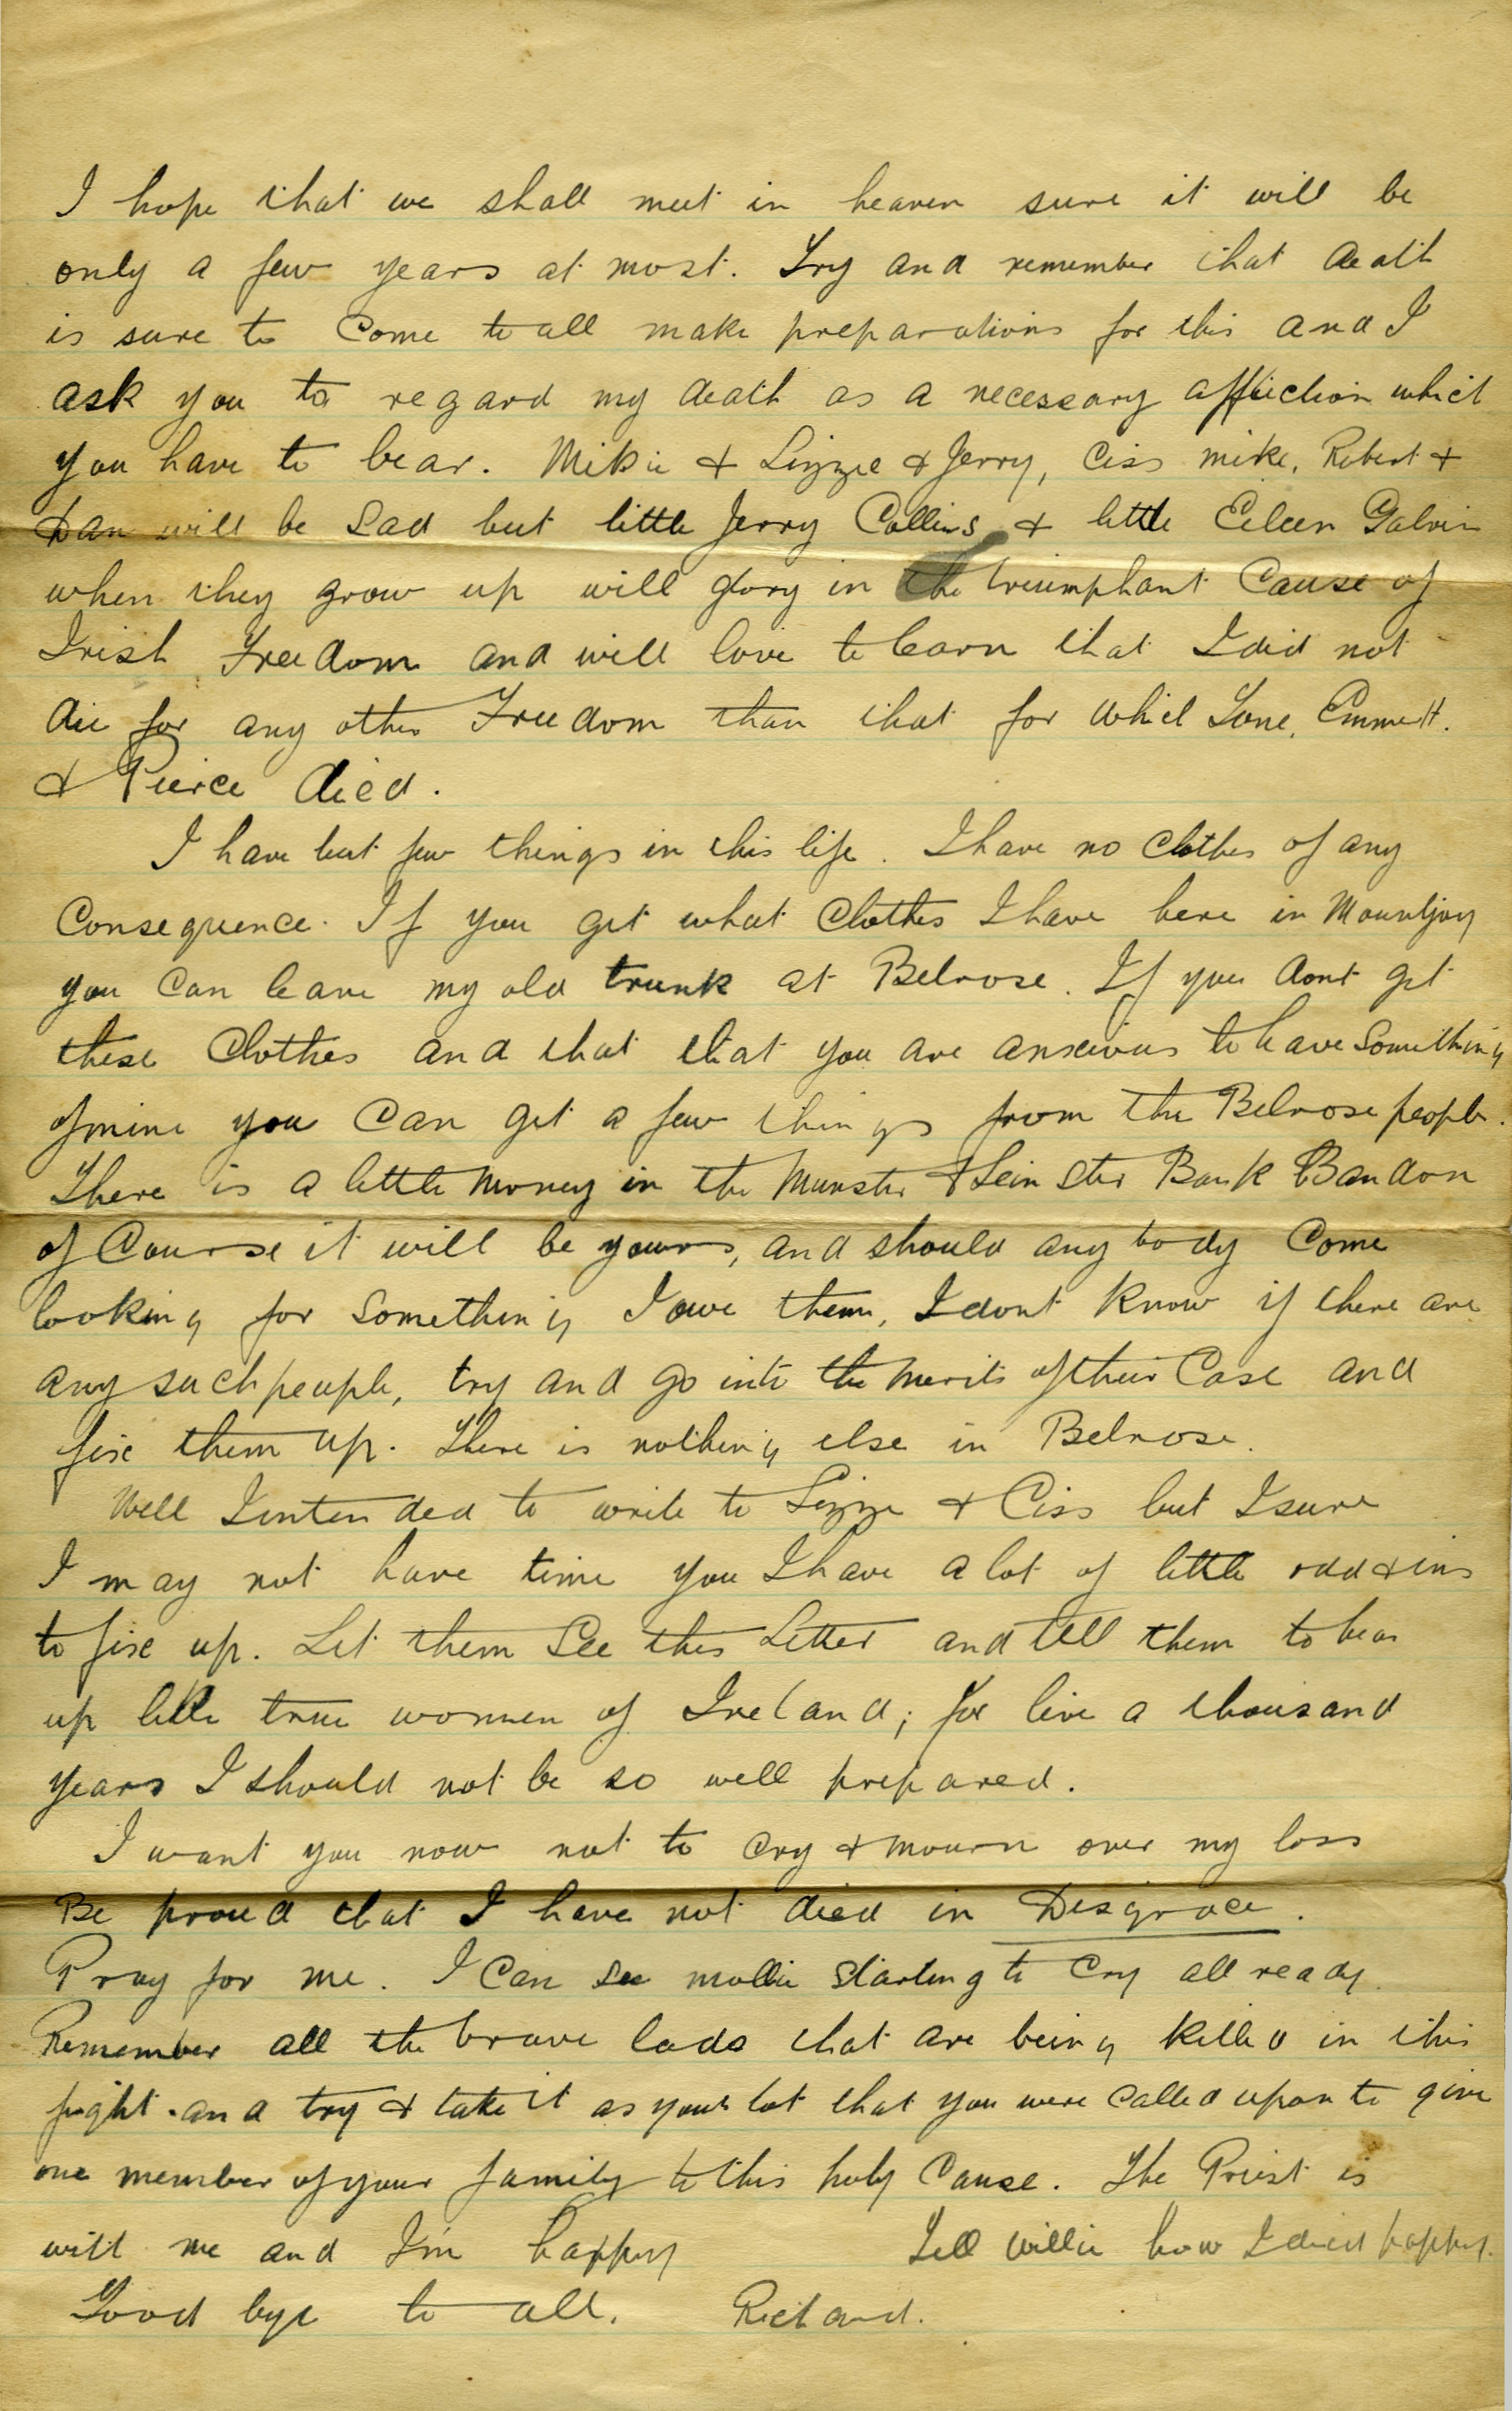 I hope that we shall meet in heaven sure it will be
only a few years at most. Try and remember that death
is sure to come to all make preparations for this and I
ask you to regard my death as a necessary affliction which
you have to bear. Mikie & Lizzie & Jerry, Ciss Mike, Robert &
Dan will be sad but little Jerry Collins & little Eileen Galvin
when they grow up will glory in the triumphant Cause of
Irish Freedom and will love to learn that I did not
die for any other Freedom than that for which Tone, Emmett.
& Pierce died.
I have but few things in this life. I have no clothes of any
Consequence. If you get what clothes I have here in Mountjoy
you can leave my old trunk at Belrose. If you dont get
these clothes and that that you are anxious to have something
of mine you can get a few things from the Belrose people.
There is a little money in the Munster & Leinster Bank Bandon
of Course it will be yours, and should any body come
looking for something I owe them, I dont know if there are
any such people, try and go into the merits of their Case and
fix them up. There is nothing else in Belrose.
Well I intended to write to Lizzie & Ciss but I sure
I may not have time you I have a lot of little odd & ins
to fix up. Let them see this Letter and tell them to bear
up like true women of Ireland; for live a thousand
years I should not be so well prepared.
I want you now not to cry & mourn over my loss
Be proud that I have not died in Disgrace.
Pray for me. I can see Mollie starting to cry all ready.
Remember all the brave lads that are being killed in this
fight. and try & take it as your lot that you were called upon to give
one member of your family to this holy Cause. The Priest is
with me and I'm happy Tell Willie how I died happy.
Good bye to all. Richard.